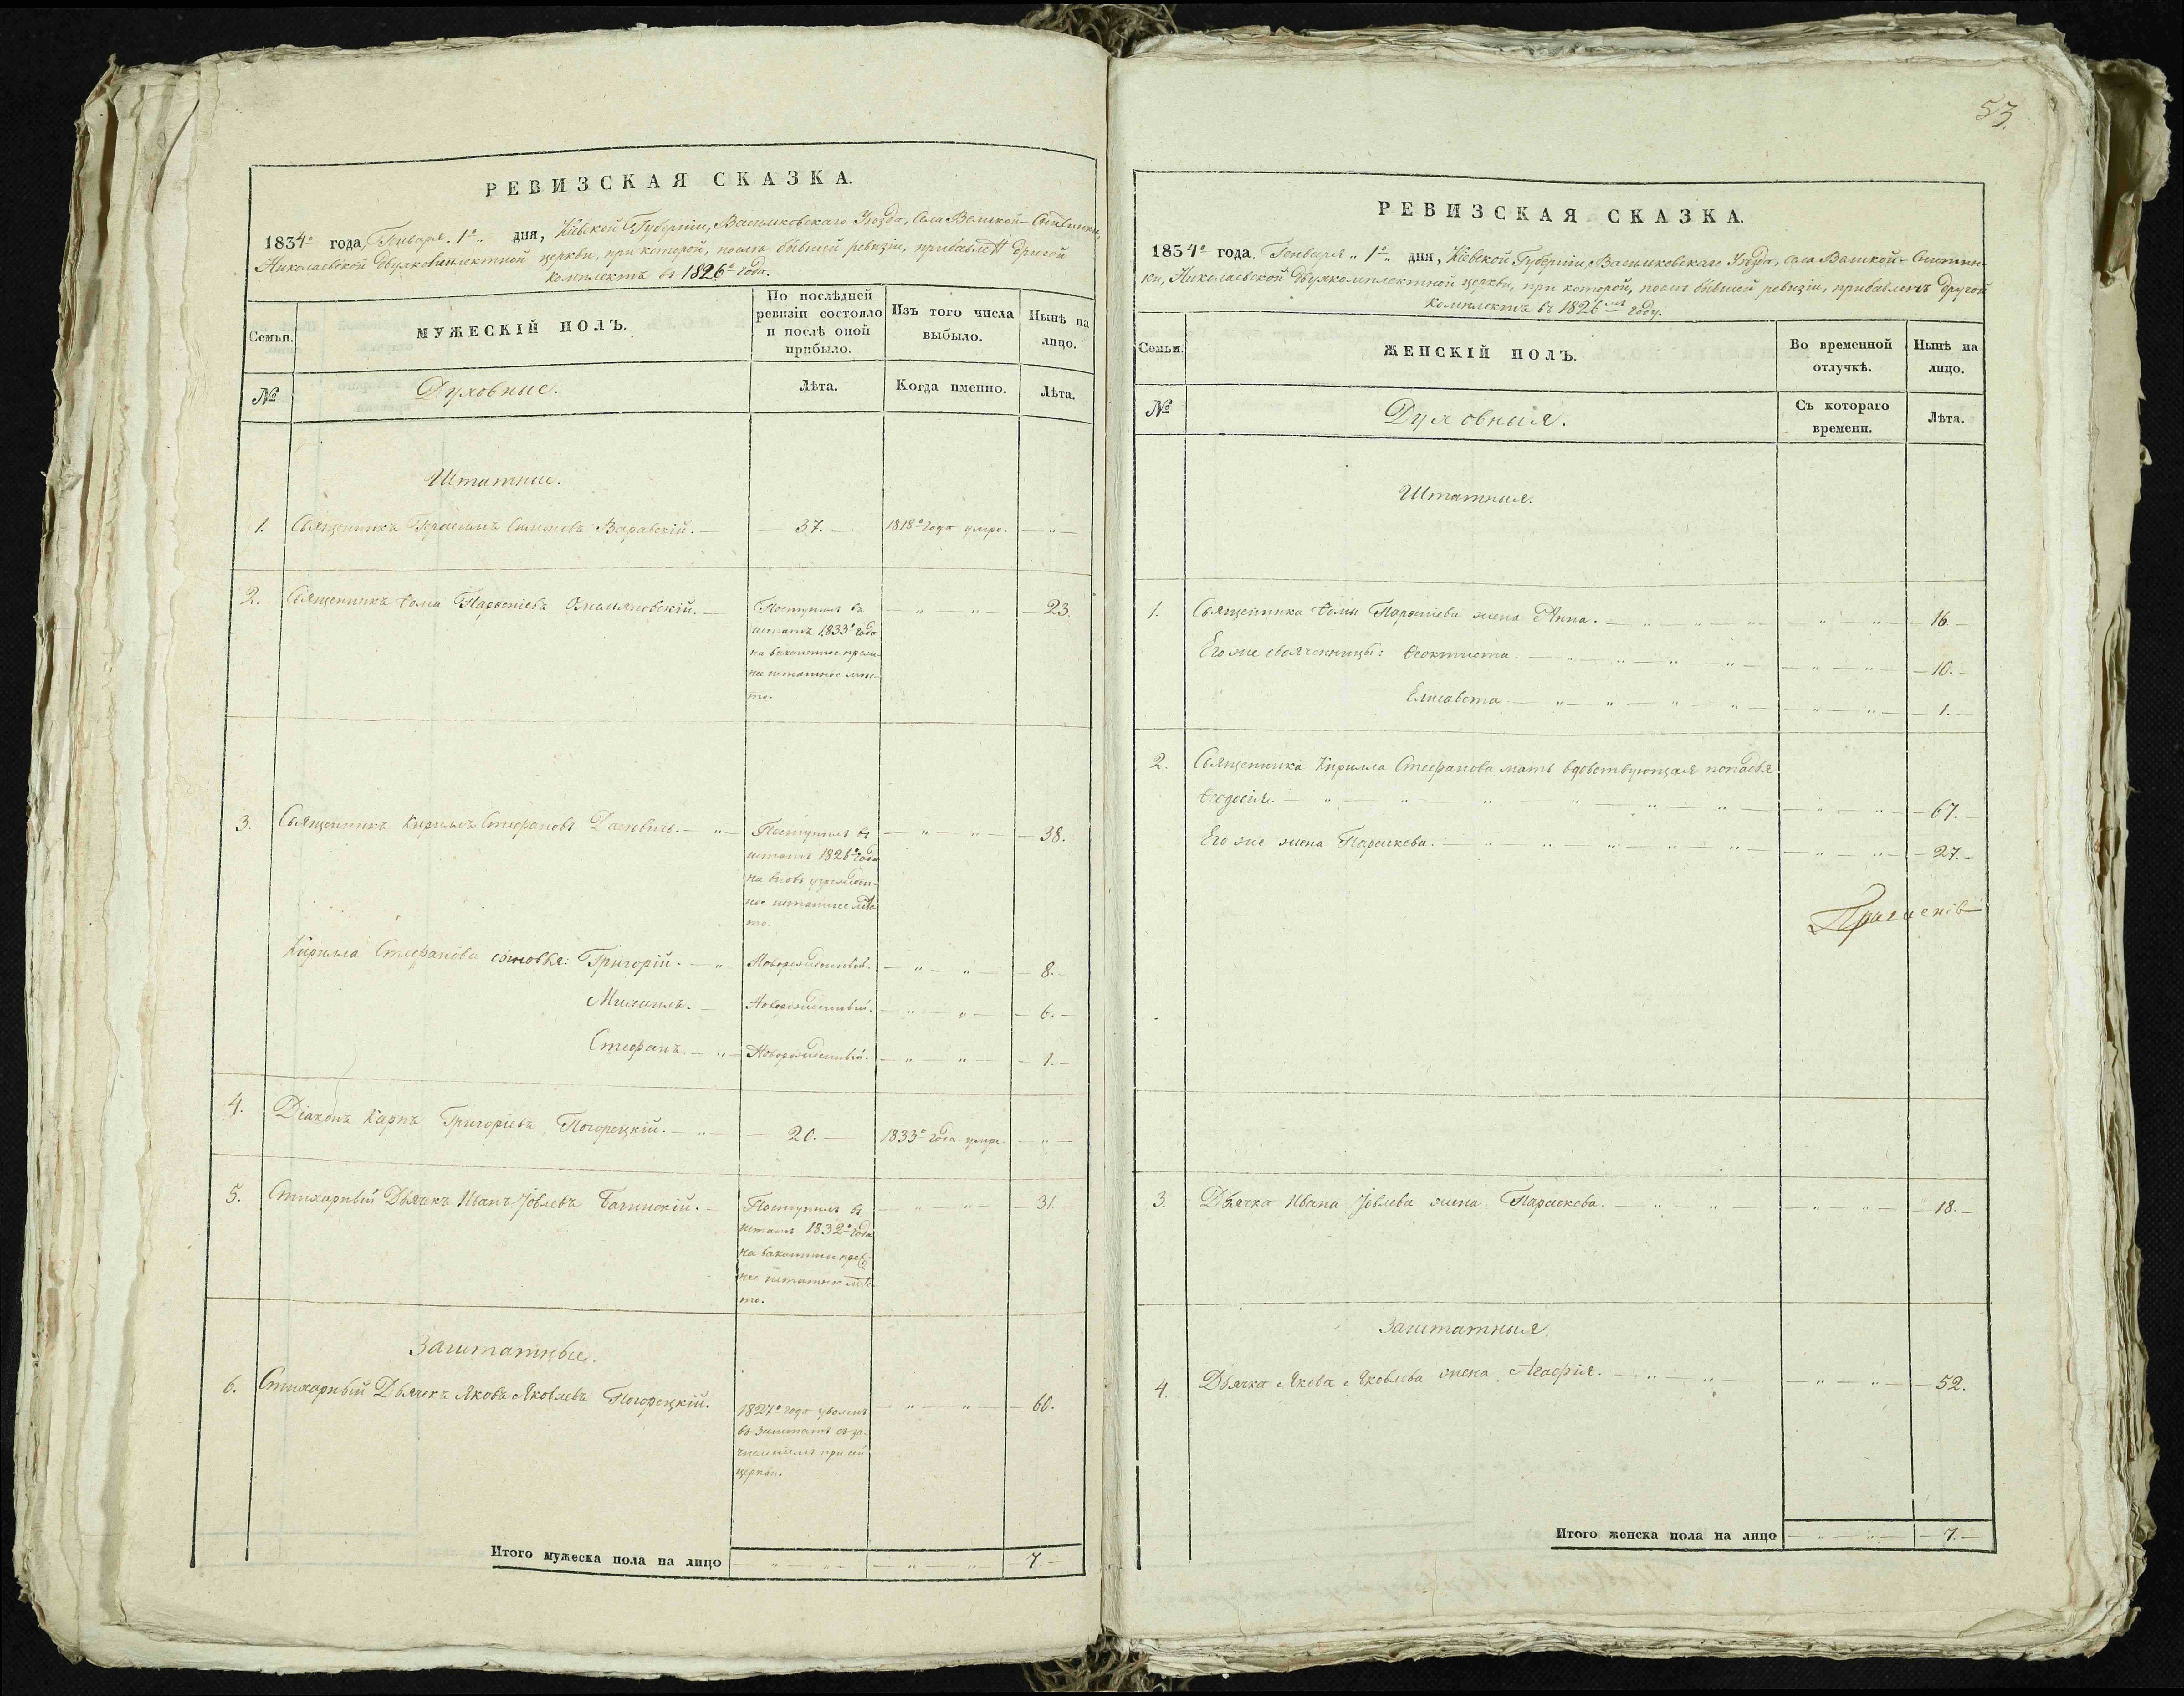 РЕВИЗСКАЯ СКАЗКА.
1834º года, Генваря „ 1º „ дня, Кіевской Губерніи, Васильковскаго Уѣзда, Села Великой-Снѣтинки,
Николаевской двухкомплектной церкви, при которой, послѣ бывшей ревизіи, прибавленъ другой
комплектъ въ 1826º года.
Семьи.
МУЖЕСКІЙ ПОЛЪ.
По послѣдней
ревизіи состояло
и послѣ оной
прибыло.
Изъ того числа
выбыло.
Нынѣ на
лицо.
№
Духовные.
Лѣта.
Когда именно.
Лѣта.
Штатные.
1. Священникъ Герасимъ Симеоновъ Варавскій. — 37. — 1818º года умре. — „ —
2. Священникъ Ѳома Парѳеніевъ — „ — „ — 23.
Поступилъ въ
штатъ 1833º года
на вакантное
на штатное мѣс-
то.
3. Священникъ Кириллъ Стефановъ — „ — „ — „ — 38.
Поступилъ въ
штатъ 1826º года
на вновь учрежден-
ное штатное мѣс-
то.
Кирилла Стефанова сыновья: Григорій. — „ — Новорожденный. — „ — „ — 8. —
Михаилъ. — Новорожденный. — „ — „ — 6. —
Стефанъ. — „ — Новорожденный. — „ — „ — 1. —
4. Діаконъ Карпъ Григоріевъ Погорецкій. — „ — 20. — 1833º года умре. — „ —
5. Стихарный Дьячекъ Иванъ Іовлевъ — „ — „ — 31. —
Поступилъ въ
штатъ 1832º года
на вакантное
штатное мѣс-
то.
Заштатные.
6. Стихарный Дьячекъ Яковъ Яковлевъ Погорецкій. — „ — „ — 60. —
1827º года уволенъ
въ заштатъ съ при-
численіемъ при сей
церкви.
Итого мужеска пола на лицо — „ — „ — — „ — „ — 7. —
53.
РЕВИЗСКАЯ СКАЗКА.
1834º года, Генваря „ 1º „ дня, Кіевской Губерніи, Васильковскаго Уѣзда, села Великой-Снитин-
ки, Николаевской двухкомплектной церкви, при которой, послѣ бывшей ревизіи, прибавленъ другой
комплектъ въ 1826мъ году.
Семьи.
ЖЕНСКІЙ ПОЛЪ.
Во временной
отлучкѣ.
Нынѣ на
лицо.
№
Духовныя.
Съ котораго
времени.
Лѣта.
Штатныя.
1. Священника Ѳомы Парѳеніева жена Анна. — „ — „ — „ — „ — „ — 16. —
Его же свояченицы: Ѳеоктиста. — „ — „ — „ — „ — „ — „ — 10. —
Елисавета. — „ — „ — „ — „ — „ — „ — 1. —
2. Священника Кирилла Стефанова мать вдовствующая попадья
Ѳеодосія. — „ — „ — „ — „ — „ — „ — „ — „ — 67. —
Его же жена Параскева. — „ — „ — „ — „ — „ — „ — „ — 27. —
3. Дьячка Ивана Іовлева жена Параскева. — „ — „ — „ — „ — 18. —
Заштатныя.
4. Дьячка Якова Яковлева жена Агафія. — „ — „ — „ — „ — 52.
Итого женска пола на лицо — „ — „ — 7. —